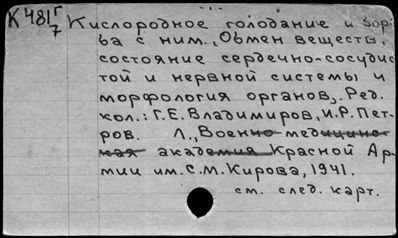 К 481г/7 Кислородное голодание и борь
ба с ним. Обмен веществ,
состояние сердечно-сосудис
той и нервной системы и
морфология органов. Ред.
кол.: Г.Е. Владимиров, И.Р. Пет-
ров. Л., Военно-медицинс-
кая академия Красной Ар-
мии им. С.М. Кирова, 1941.
см. след. карт.